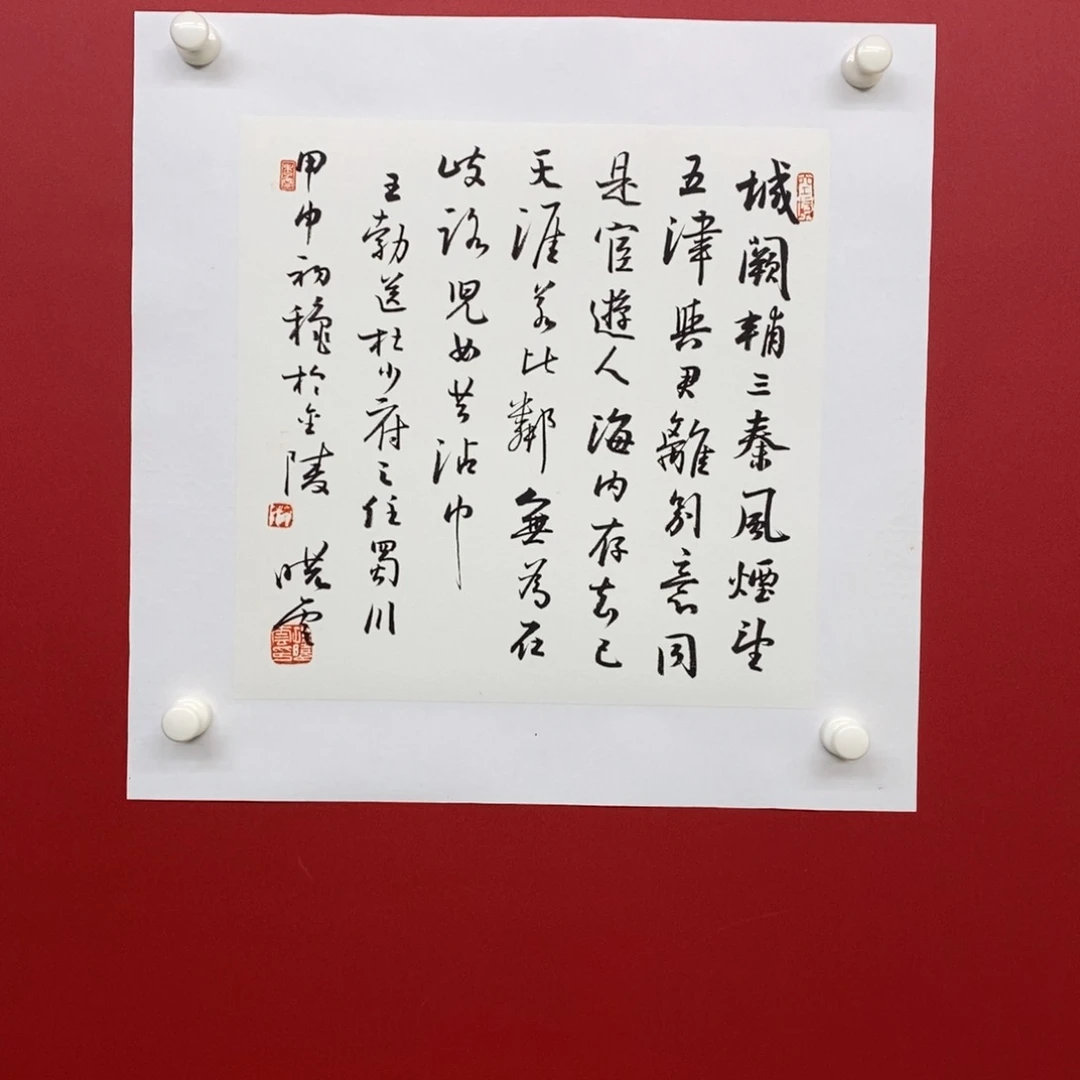 城闕輔三秦風煙望
五津與君離別意同
是宦遊人海内存知己
天涯若比鄰無為在
歧路兒女共沾巾
王勃送杜少府之任蜀川
甲申初穐於金陵
曉雲